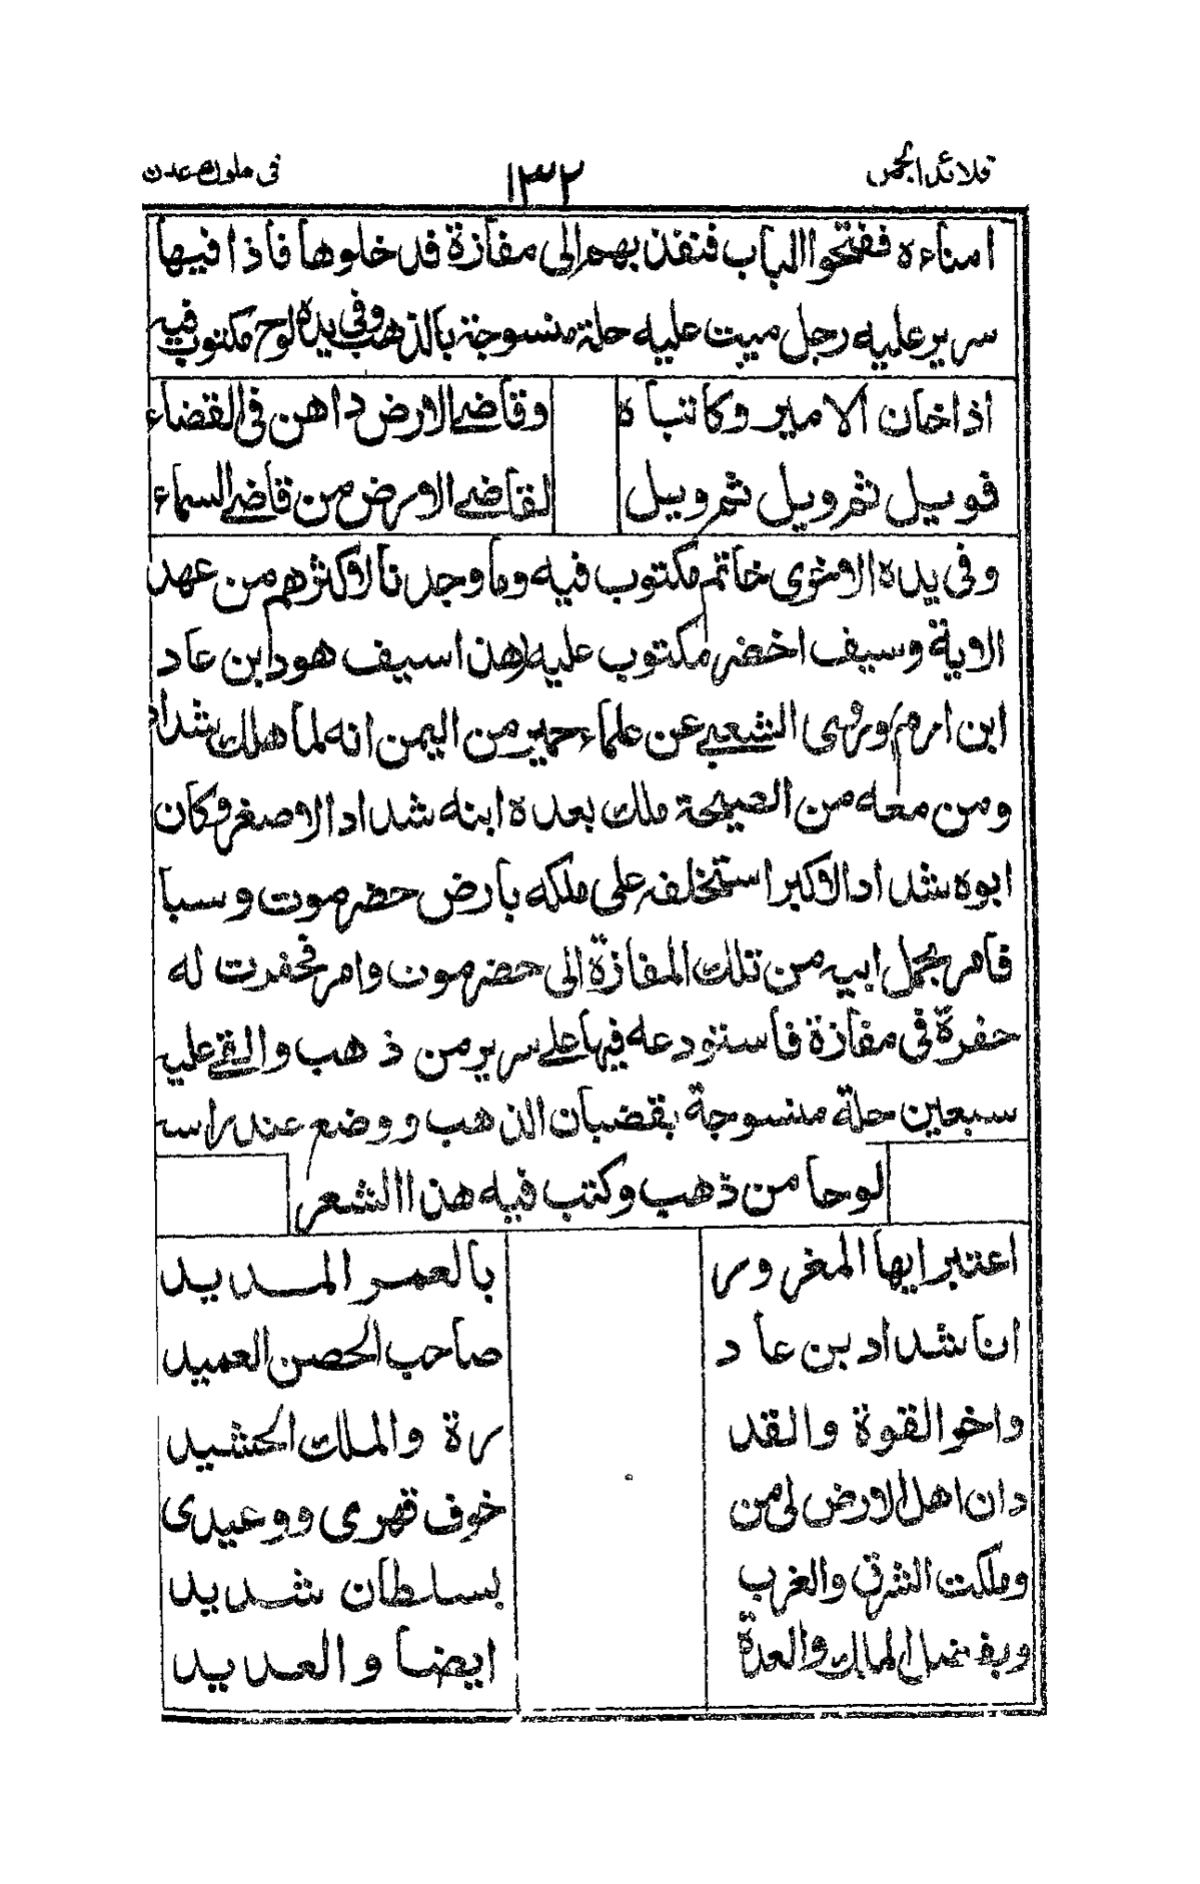 قلائد الجمن ١٣٢ في ملوك عدن
امناءه ففتحوا الباب فنفذ بهم الى مفازة فدخلوها فاذا فيها
سرير عليه رجل ميت عليه حلة منسوجة بالذهب وفي يده لوح مكتوب فيه
اذا خان الامير وكاتباه وقاضي الارض داهن في القضاء
فويل ثم ويل ثم ويل لقاضي الارض من قاضي السماء
وفي يده الاخرى خاتم مكتوب فيه وما وجدنا لاكثرهم من عهد
الاية وسيف اخضر مكتوب عليه هذا سيف هود ابن عاد
ابن ارم وروى الشعبي عن علماء حمير من اليمن انه لما هلك شداد
ومن معه من الصيحة ملك بعده ابنه شداد الاصغر وكان
ابوه شداد الاكبر استخلفه على ملكه بارض حضرموت وسبا
فامر بحمل ابيه من تلك المفازة الى حضرموت وامر فحفرت له
حفرة في مفازة فاستودعه فيها على سرير من ذهب والقى عليه
سبعين حلة منسوجة بقضبان الذهب ووضع عند راسه
لوحا من ذهب وكتب فيه هذا الشعر
اعتبر ايها المغرور بالعمر المديد
انا شداد بن عاد صاحب الحصن العميد
واخو القوة والقد رة والملك الحشيد
دان اهل الارض لي من خوف قهري ووعيدي
وملكت الشرق والغرب بسلطان شديد
وبفضل الملك والعدة ايضا والعديد